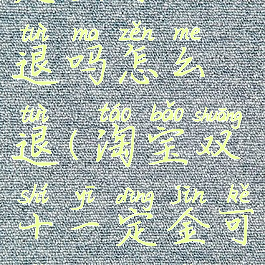 tuì ma zěn me
退吗怎么
tuì táo bǎo shuāng
退(淘宝双
shí yī dìng jīn kě
十一定金可